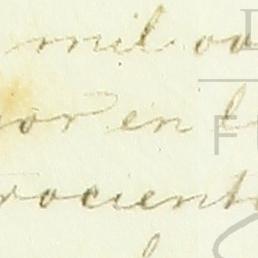 mil oc
or en l
rocient